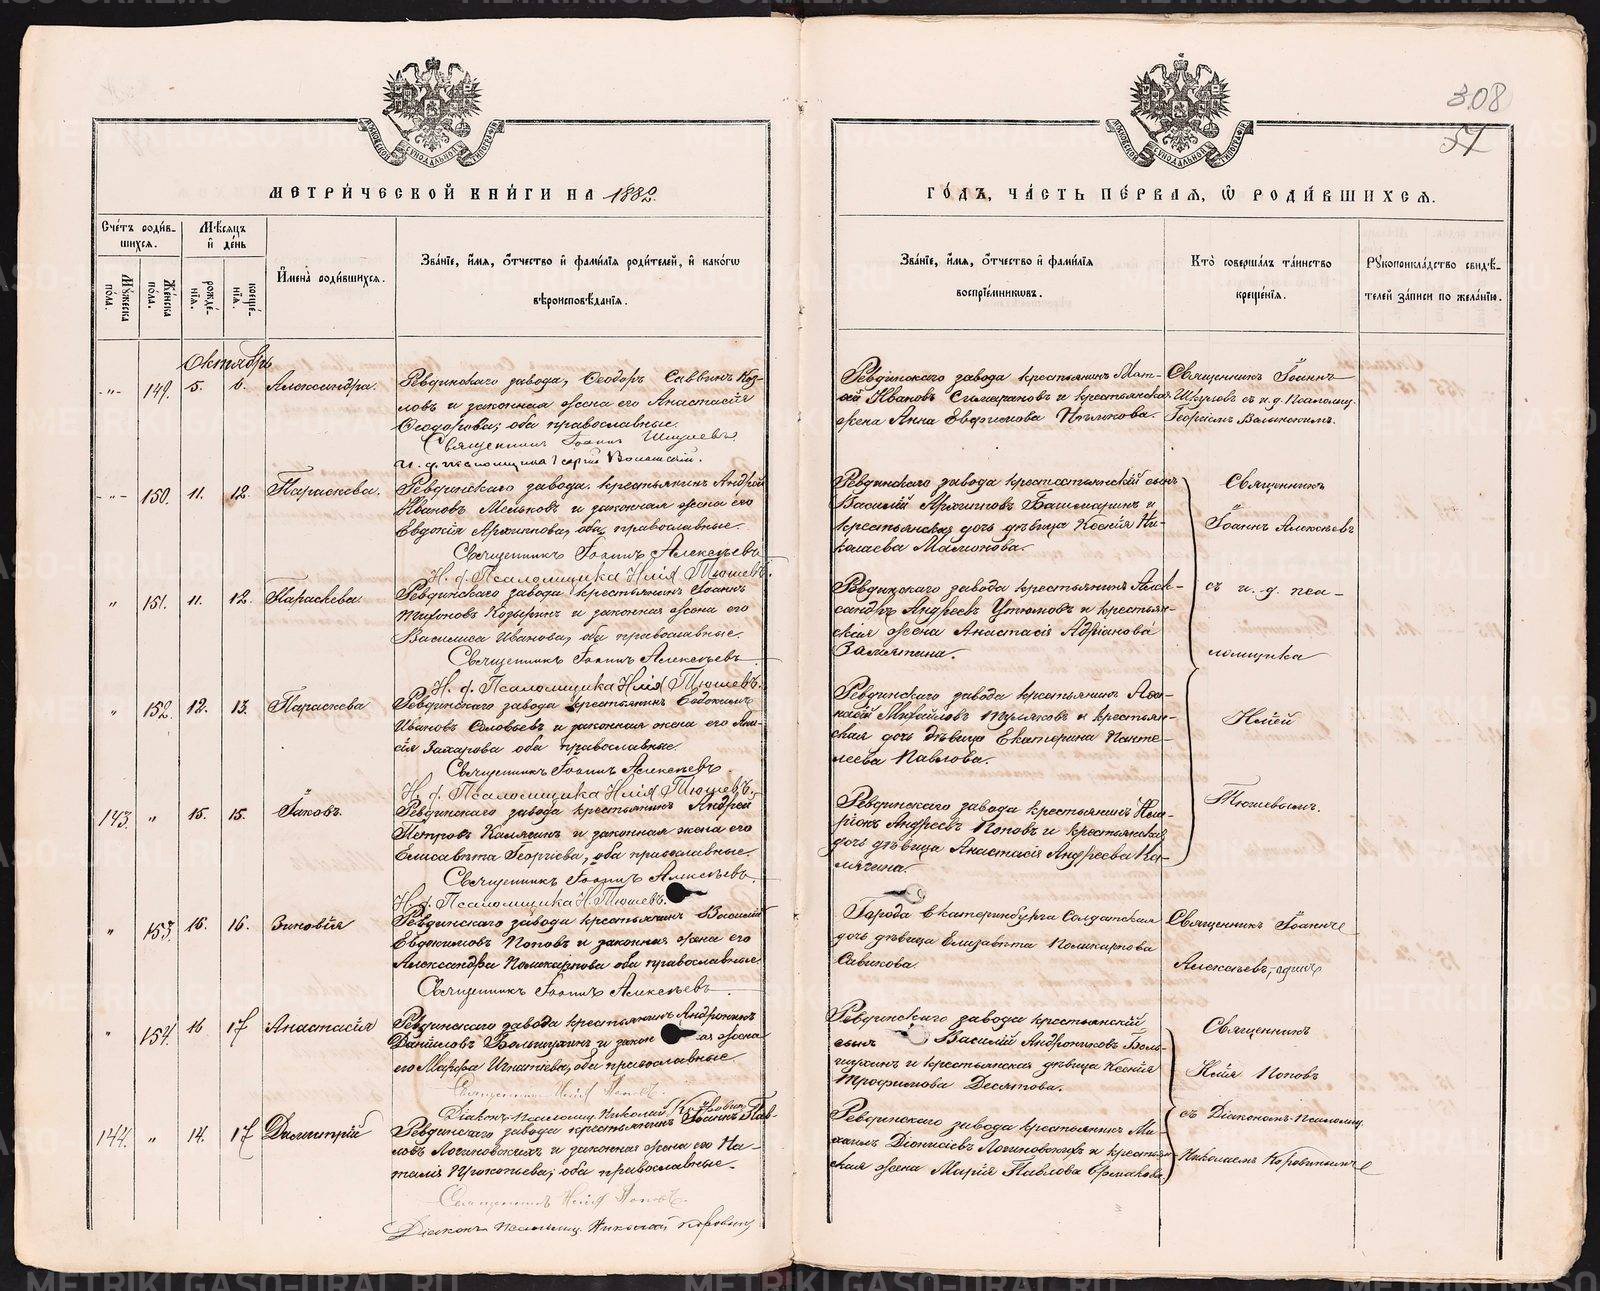 308
57
МОСКОВСКОЙ СѴНОДАЛЬНОЙ ТИПОГРАФІИ
МОСКОВСКОЙ СѴНОДАЛЬНОЙ ТИПОГРАФІИ
МЕТРИ́ЧЕСКОЙ КНИ́ГИ НА 1882
ГО́ДЪ, ЧА́СТЬ ПЕ́РВАЯ, Ѽ РОДИ́ВШИХСЯ.
Сче́тъ роди́в-
шихся.
Мѣ́сяцъ
и҆ де́нь
Мꙋ́жеска по́ла.
Же́нска по́ла.
рожде́-
нїя.
креще́-
нїя.
И҆мена̀ роди́вшихся.
Зва́нїе, и҆́мя, ѻ҆́тчество и҆ фами́лїя роди́телей, и҆ како́гѡ
вѣроисповѣ́данїя.
Зва́нїе, и҆́мя, ѻ҆́тчество и҆ фами́лїя
воспрїе́мниковъ.
Кто̀ соверша́лъ та́инство
креще́нїя.
Рꙋкоприкла́дство свидѣ́-
телей за́писи по жела́нїю.
Октябрь
-"- 149. 5. 6. Александра.
Ревдинскаго завода, Ѳеодоръ Саввинъ Коз-
ловъ и законная жена его Анастасія
Ѳеодорова, оба православные.
Священникъ Іоаннъ
И. д. псаломщика Георгій
Ревдинскаго завода крестьянинъ Мат-
ѳей Ивановъ и крестьянская
жена Анна Евфимова
Священникъ Іоаннъ
съ и. д. псаломщ.
Георгіемъ
-"- 150. 11. 12. Параскева.
Ревдинскаго завода крестьянинъ Андрей
Ивановъ Мельковъ и законная жена его
Евдокія Архипова, оба православные.
Священникъ Іоаннъ Алексѣевъ
И. д. Псаломщика Илія Тюшевъ.
Ревдинскаго завода крестьянскій сынъ
Василій Архиповъ Башмаринъ и
крестьянская дочь дѣвица Ксенія Ни-
колаева Мамонова.
Священникъ
Іоаннъ Алексѣевъ
съ и. д. пса-
ломщика
Иліей
Тюшевымъ.
" 151. 11. 12. Параскева.
Ревдинскаго завода крестьянинъ Іоаннъ
Тихоновъ Козыринъ и законная жена его
Василиса Иванова, оба православные.
Священникъ Іоаннъ Алексѣевъ
И. д. Псаломщика Илія Тюшевъ.
Ревдинскаго завода крестьянинъ Алек-
сандръ Андреевъ Утюмовъ и крестьян-
ская жена Анастасія Адріанова
Замятина.
" 152. 12. 13. Параскева
Ревдинскаго завода крестьянинъ Евдокимъ
Ивановъ Соловьевъ и законная жена его Ана-
сія Захарова оба православные.
Священникъ Іоаннъ Алексѣевъ.
И. д. Псаломщика Илія Тюшевъ.
Ревдинскаго завода крестьянинъ Аѳа-
насій Михайловъ Туляковъ и крестьян-
ская дочь дѣвица Екатерина Панте-
леева Павлова.
143. " 15. 15. Іаковъ.
Ревдинскаго завода крестьянинъ Андрей
Петровъ Калягинъ и законная жена его
Елисавѣта Георгіева, оба православные.
Священникъ Іоаннъ Алексѣевъ.
И. д. Псаломщика И. Тюшевъ.
Ревдинскаго завода крестьянинъ Ила-
ріонъ Андреевъ Поповъ и крестьянская
дочь дѣвица Анастасія Андреева Ка-
лягина.
" 153. 16. 16. Зиновія
Ревдинскаго завода крестьянинъ Василій
Евдокимовъ Поповъ и законная жена его
Александра Поликарпова оба православные.
Священникъ Іоаннъ Алексѣевъ.
Города Екатеринбурга Солдатская
дочь дѣвица Елизавѣта Поликарпова
Савикова.
Священникъ Іоаннъ
Алексѣевъ, одинъ
" 154. 16 17 Анастасія
Ревдинскаго завода крестьянинъ Андроникъ
Даниловъ Большухинъ и закон ая жена
его Марѳа Игнатіева, оба православные.
Священникъ Илія Поповъ.
Діаконъ Псаломщ. Николай Коровинъ
Ревдинскаго завода крестьянскій
сынъ Василій Андрониковъ Боль-
шухинъ и крестьянская дѣвица Ксенія
Трофимова Десятова.
Священникъ
Илія Поповъ
съ Діакономъ-Псаломщ.
Николаемъ Коровинымъ
144. " 14. 17 Димитрій
Ревдинскаго завода крестьянинъ Іоаннъ Пав-
ловъ Логиновскихъ и законная жена его На-
талія Прокопьева, оба православные.
Священникъ Илія Поповъ.
Діаконъ Псаломщ. Николай Коровинъ
Ревдинскаго завода крестьянинъ Ми-
хаилъ Діонисіевъ Логиновскихъ и крестьян-
ская жена Марія Павлова Ермакова.
METRIKI.GASO-URAL.RU